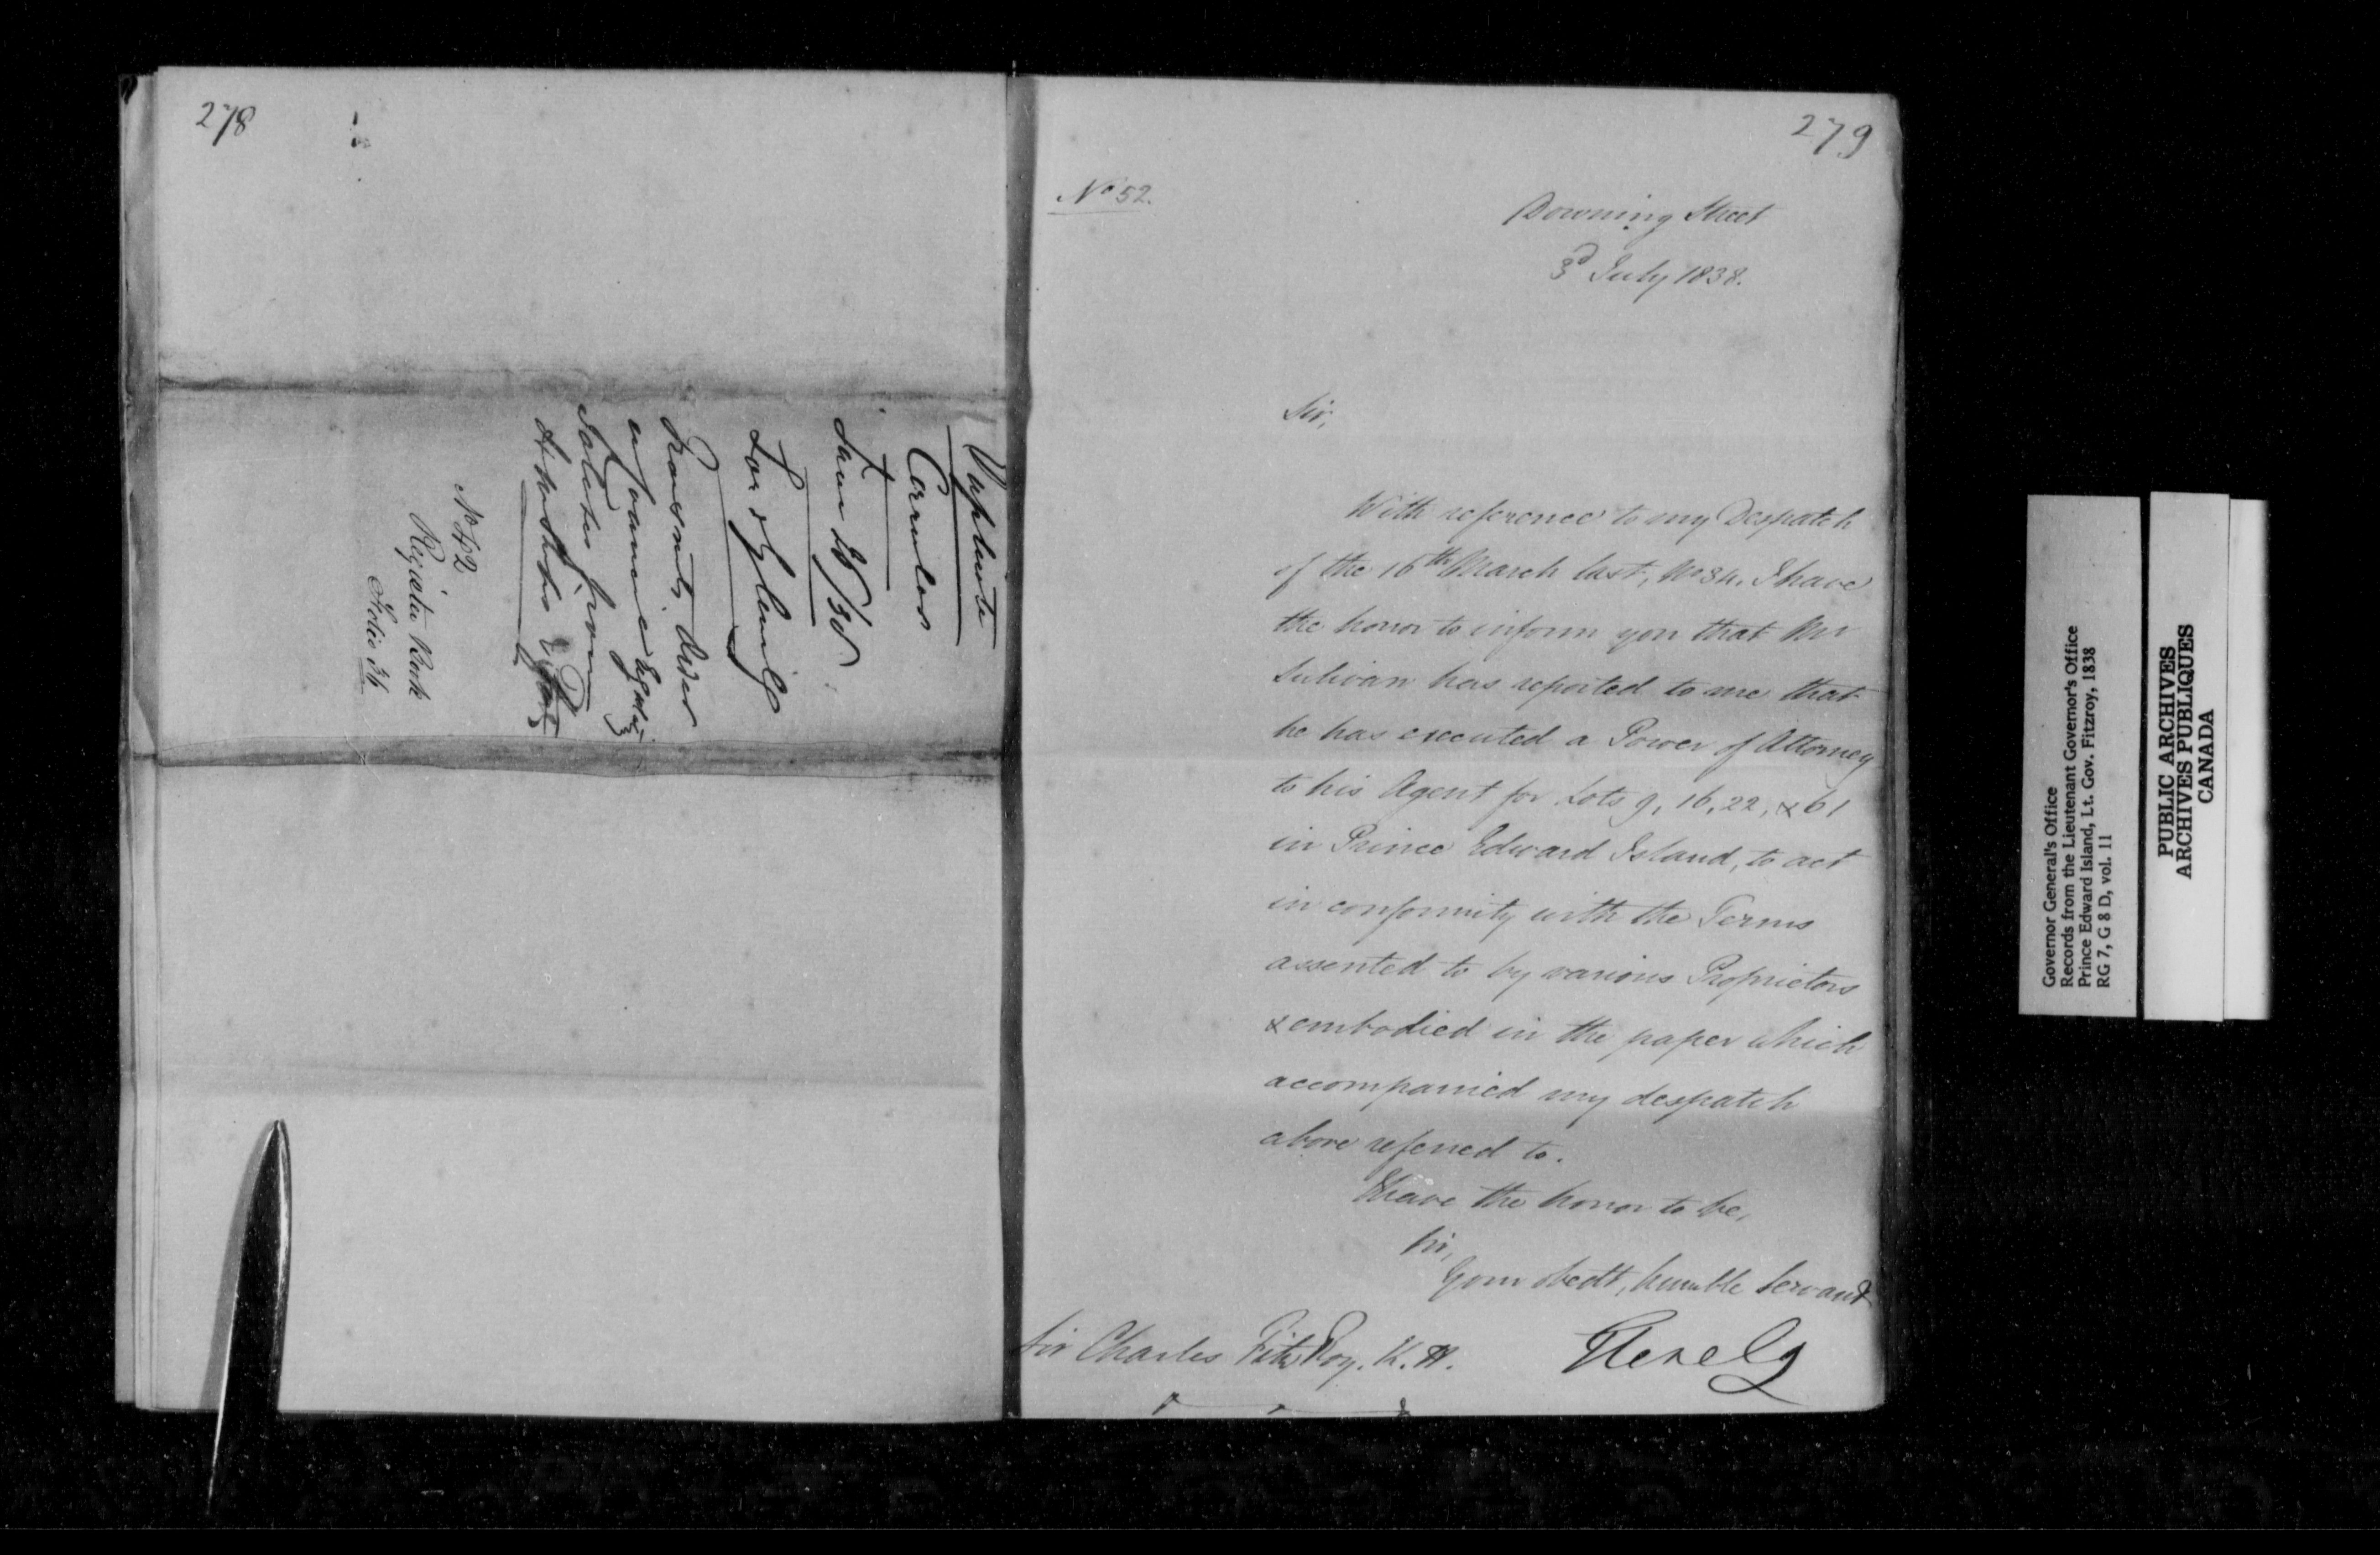 278
Duplicate
Circular
June 20/38
Lord Glenelg
Transmits Order
in Council
Salutes from
No 42
Register Book
Folio 36
279
No 52.
Downing Street
3d July 1838.
Sir,
With reference to my Despatch
of the 16th March last, No 34. I have
the honor to inform you that Mr
Sulivan has reported to me that
he has executed a Power of Attorney
to his Agent for Lots 9, 16, 22, & 61
in Prince Edward Island, to act
in conformity with the Terms
assented to by various Proprietors
& embodied in the paper which
accompanied my despatch
above referred to.
I have the honor to be,
Sir,
Your obedt, humble Servant
Glenelg
Sir Charles FitzRoy. K. H.
Governor General's Office
Records from the Lieutenant Governor's Office
Prince Edward Island, Lt. Gov. Fitzroy, 1838
RG 7, G 8 D, vol. 11
PUBLIC ARCHIVES
ARCHIVES PUBLIQUES
CANADA